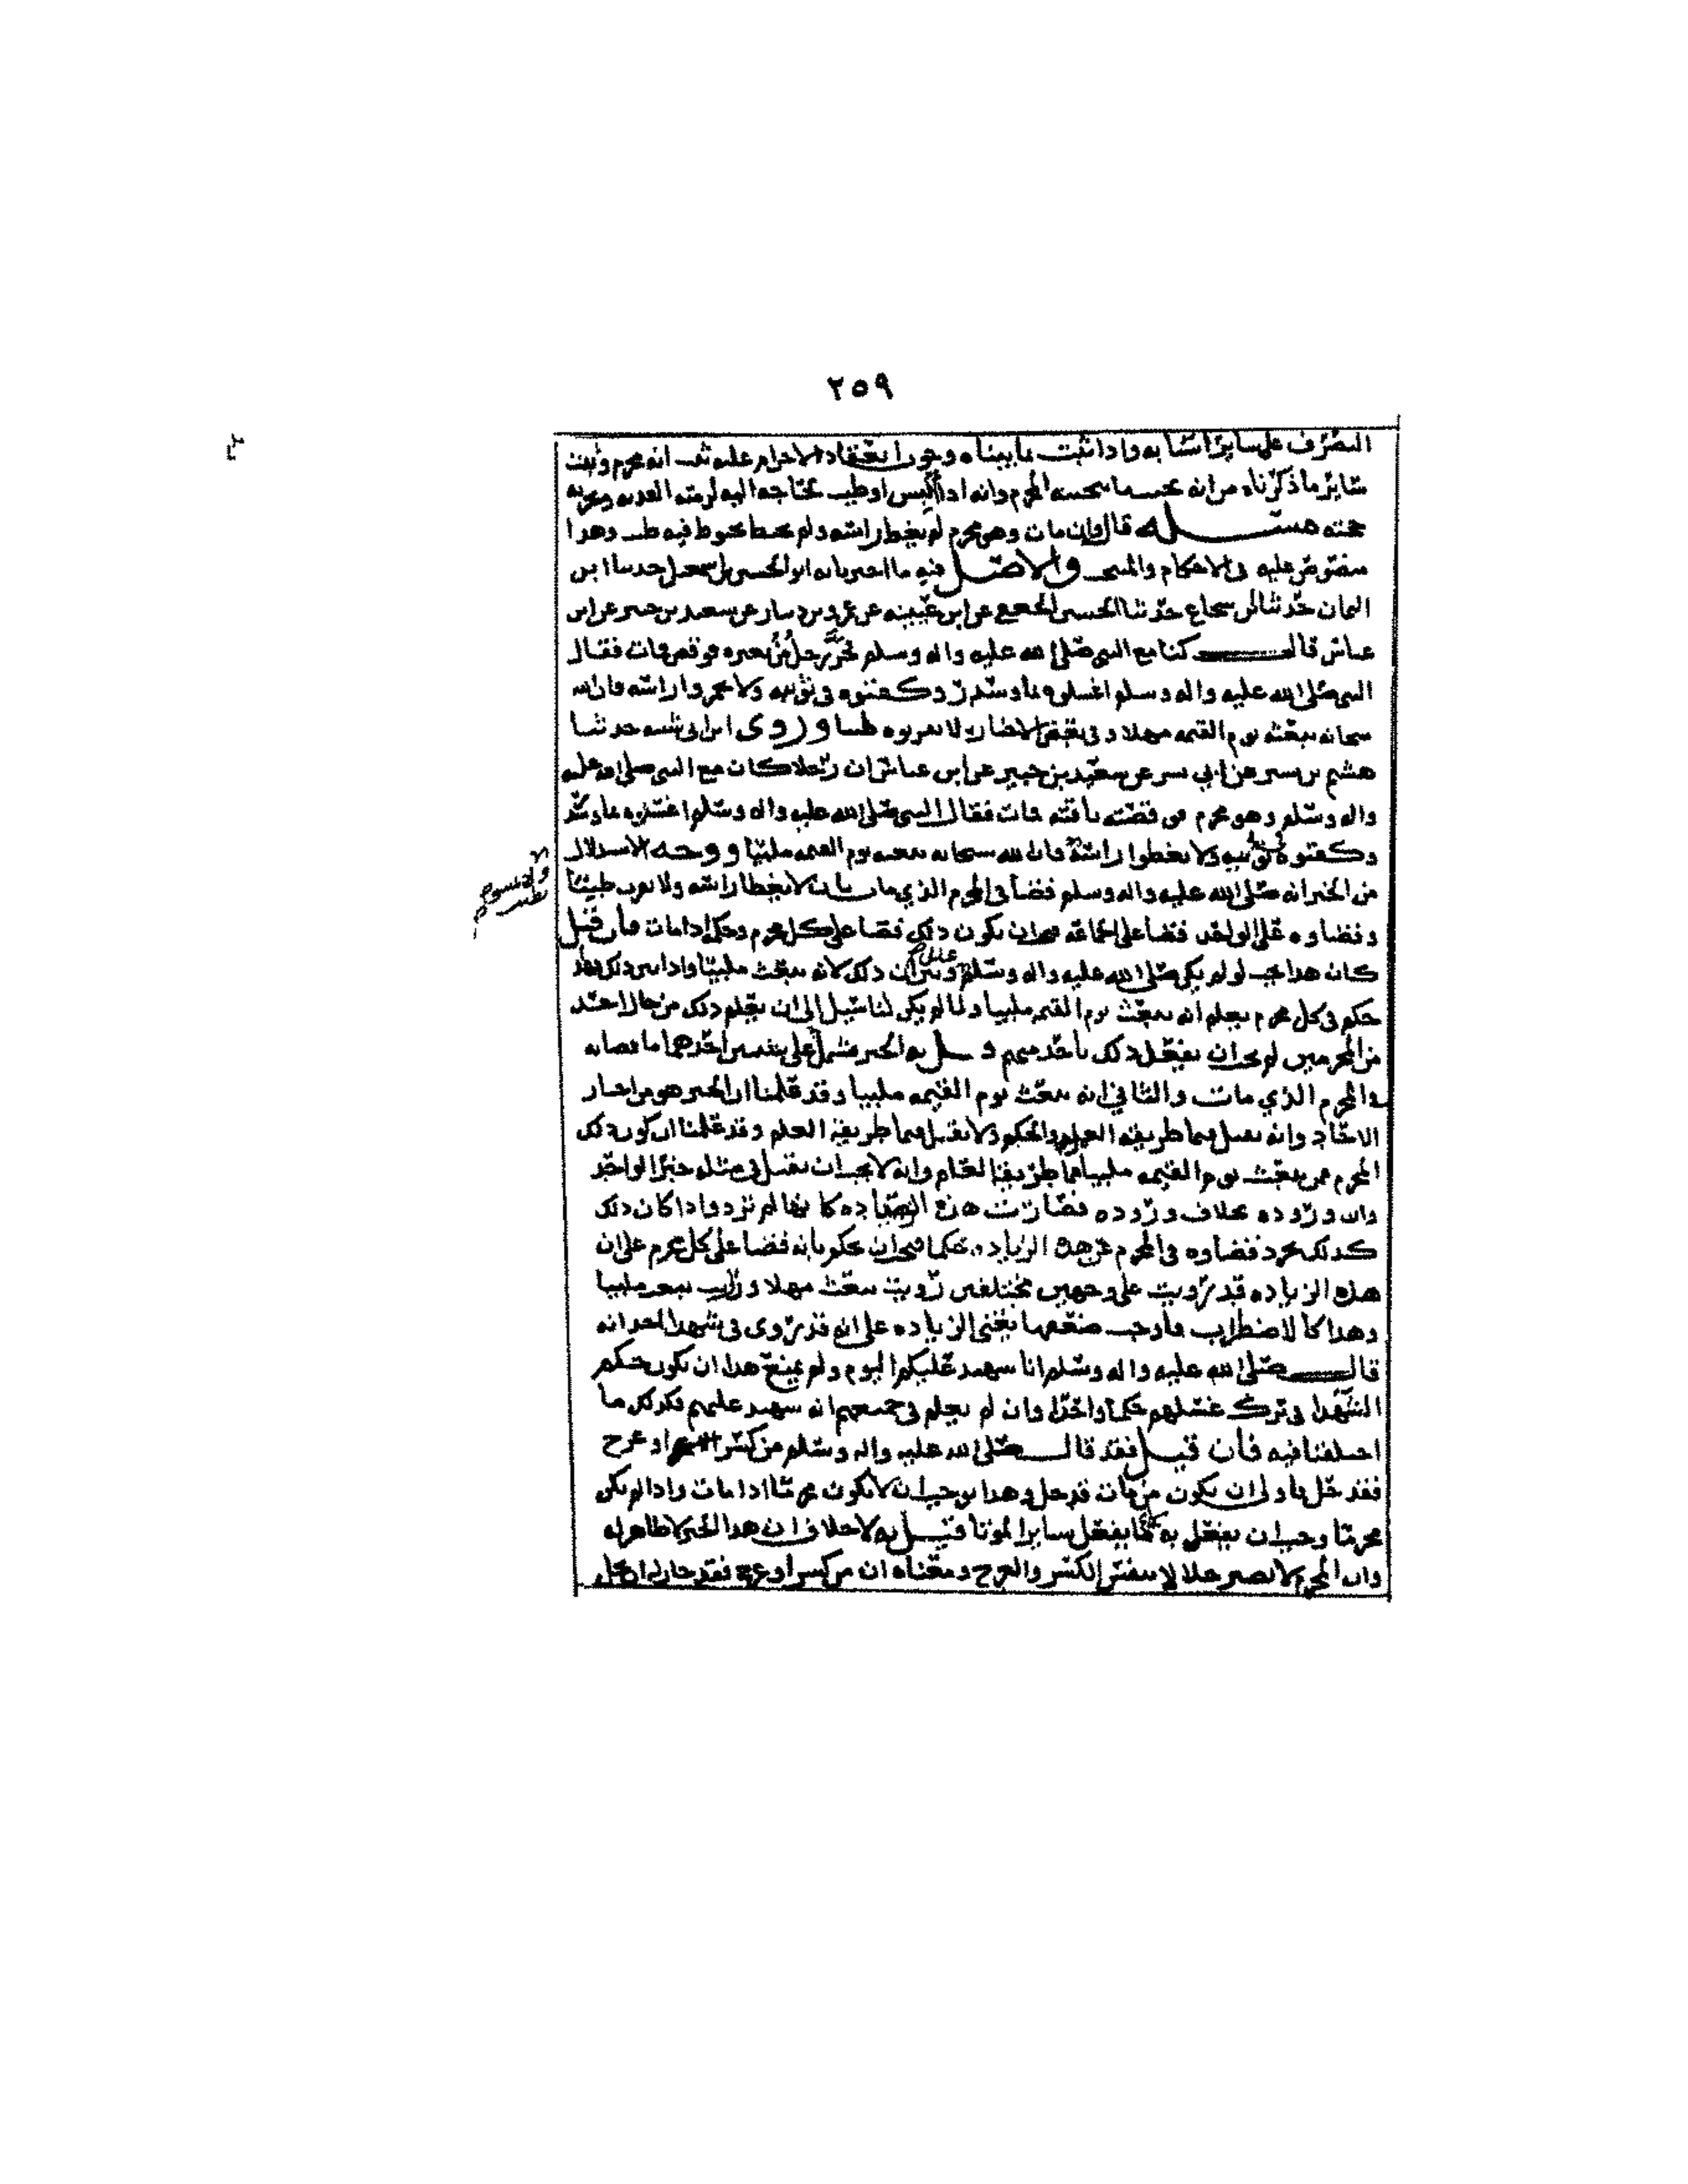 ٢٥٩
التصرف على ساير اسبابه واذا ثبت بما بيناه وجوب انعقاد الاحرام عليه ثبت انه محرم وثبت
ساير ما ذكرناه من انه يجنب ما يجنبه المحرم وانه اذا البس او طيب لحاجته اليه لزمته الفديه
حجته مسئله قال وان مات وهو محرم لم يغط راسه ولم يحنط بحنوط فيه طيب وهذا
منصوص عليه في الاحكام والمنتخب والاصل فيه ما اخبرنا به ابو الحسين بن اسمعيل حدثنا ابن
اليمان حدثنا ابن شجاع حدثنا الحسين الجعفي عن ابن عيينه عن عمرو بن دينار عن سعيد بن جبير عن ابن
عباس قال كنا مع النبي صلى الله عليه واله وسلم فخر رجل من بعيره فوقص فمات فقال
النبي صلى الله عليه واله وسلم اغسلوه بماء وسدر وكفنوه في ثوبيه ولا تخمروا راسه فان الله
سبحانه يبعثه يوم القيمه مهلا وفي بعض الاخبار لا تقربوه طيبا وروى ابن ابي شيبه حدثنا
هشيم بن بشير عن ابي بشر عن سعيد بن جبير عن ابن عباس ان رجلا كان مع النبي صلى الله عليه
واله وسلم وهو محرم فوقصته ناقته فمات فقال النبي صلى الله عليه واله وسلم اغسلوه بماء وسدر
وكفنوه في ثوبيه ولا تغطوا راسه فان الله سبحانه يبعثه يوم القيمه ملبيا ووجه الاستدلال
ولا تمسوه
طيب
من الخبر انه صلى الله عليه واله وسلم قضا في المحرم الذي مات بان لا يغطا راسه ولا يقرب طيبا
وقضاوه على الواحد قضا على الجماعه فيجب ان يكون ذلك قضا على كل محرم وحكم اذا مات فان قيل
كان هذا يجب لو لم يكن صلى الله عليه واله وسلم وبين ان ذلك لانه يبعث ملبيا واذا بين ذلك فهو
حكم في كل محرم يعلم انه يبعث يوم القيمه ملبيا ولما لم يكن لنا سبيل الى ان يعلم ذلك من حال احد
من المحرمين لم يجز ان يفعل ذلك باحد منهم قيل له الخبر مشتمل على شيئين احدهما ما قضا به
في المحرم الذي مات والثاني انه يبعث يوم القيمه ملبيا وقد علمنا ان الخبر هو من اخبار
الاحاد وانه يقبل فيما طريقه العمل والحكم ولا يقبل فيما طريقه العلم وقد علمنا ان كون ذلك
المحرم ممن يبعث يوم القيمه ملبيا مما طريقه العلم وانه لا يجب ان يقبل في مثله خبر الواحد
وان وروده بخلاف وروده فصارت هذه الزياده كانها لم ترد واذا كان ذلك
كذلك تجرد قضاوه في المحرم عن هذه الزياده حكما فيجب ان يحكم بانه قضا على كل محرم على ان
هذه الزياده قد رويت على وجهين مختلفين رويت يبعث مهلا ورويت يبعث ملبيا
وهذا كالاضطراب فاوجب ضعفها يعني الزياده على انه قد روى في شهدا احد انه
قال صلى الله عليه واله وسلم انا شهيد عليكم اليوم ولم يمنع هذا ان يكون حكم
الشهدا في ترك غسلهم حكما واحدا وان لم يعلم في جميعهم انه شهيد عليهم فكذلك ما
اختلفنا فيه فان قيل فقد قال صلى الله عليه واله وسلم من كسر او عرج
فقد حل فاولى ان يكون من مات قد حل وهذا يوجب ان لا يكون محرما اذا مات واذا لم يكن
محرما وجب ان يفعل به كما يفعل بساير الموتا قيل له لا خلاف ان هذا الخبر لا ظاهر له
وان المحرم لا يصير حلالا بنفس الكسر والعرج ومعناه ان من كسر او عرج فقد جاز له ان يحل